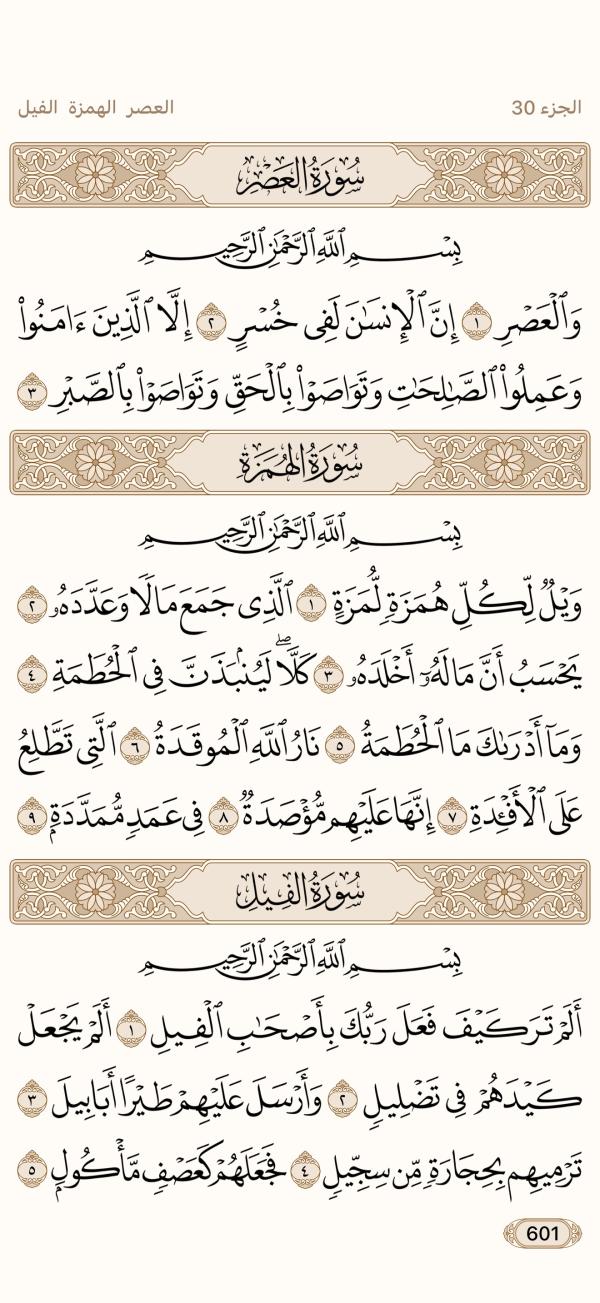 الجزء 30
العصر الهمزة الفيل
سُورَةُ العَصْرِ
بِسْمِ ٱللَّهِ ٱلرَّحْمَٰنِ ٱلرَّحِيمِ
وَٱلْعَصْرِ ١ إِنَّ ٱلْإِنسَٰنَ لَفِى خُسْرٍ ٢ إِلَّا ٱلَّذِينَ ءَامَنُوا۟
وَعَمِلُوا۟ ٱلصَّٰلِحَٰتِ وَتَوَاصَوْا۟ بِٱلْحَقِّ وَتَوَاصَوْا۟ بِٱلصَّبْرِ ٣
سُورَةُ الهُمَزَةِ
بِسْمِ ٱللَّهِ ٱلرَّحْمَٰنِ ٱلرَّحِيمِ
وَيْلٌ لِّكُلِّ هُمَزَةٍ لُّمَزَةٍ ١ ٱلَّذِى جَمَعَ مَالًا وَعَدَّدَهُۥ ٢
يَحْسَبُ أَنَّ مَالَهُۥٓ أَخْلَدَهُۥ ٣ كَلَّا ۖ لَيُنۢبَذَنَّ فِى ٱلْحُطَمَةِ ٤
وَمَآ أَدْرَىٰكَ مَا ٱلْحُطَمَةُ ٥ نَارُ ٱللَّهِ ٱلْمُوقَدَةُ ٦ ٱلَّتِى تَطَّلِعُ
عَلَى ٱلْأَفْـِٔدَةِ ٧ إِنَّهَا عَلَيْهِم مُّؤْصَدَةٌ ٨ فِى عَمَدٍ مُّمَدَّدَةٍۭ ٩
سُورَةُ الفِيلِ
بِسْمِ ٱللَّهِ ٱلرَّحْمَٰنِ ٱلرَّحِيمِ
أَلَمْ تَرَ كَيْفَ فَعَلَ رَبُّكَ بِأَصْحَٰبِ ٱلْفِيلِ ١ أَلَمْ يَجْعَلْ
كَيْدَهُمْ فِى تَضْلِيلٍ ٢ وَأَرْسَلَ عَلَيْهِمْ طَيْرًا أَبَابِيلَ ٣
تَرْمِيهِم بِحِجَارَةٍ مِّن سِجِّيلٍ ٤ فَجَعَلَهُمْ كَعَصْفٍ مَّأْكُولٍۭ ٥
601